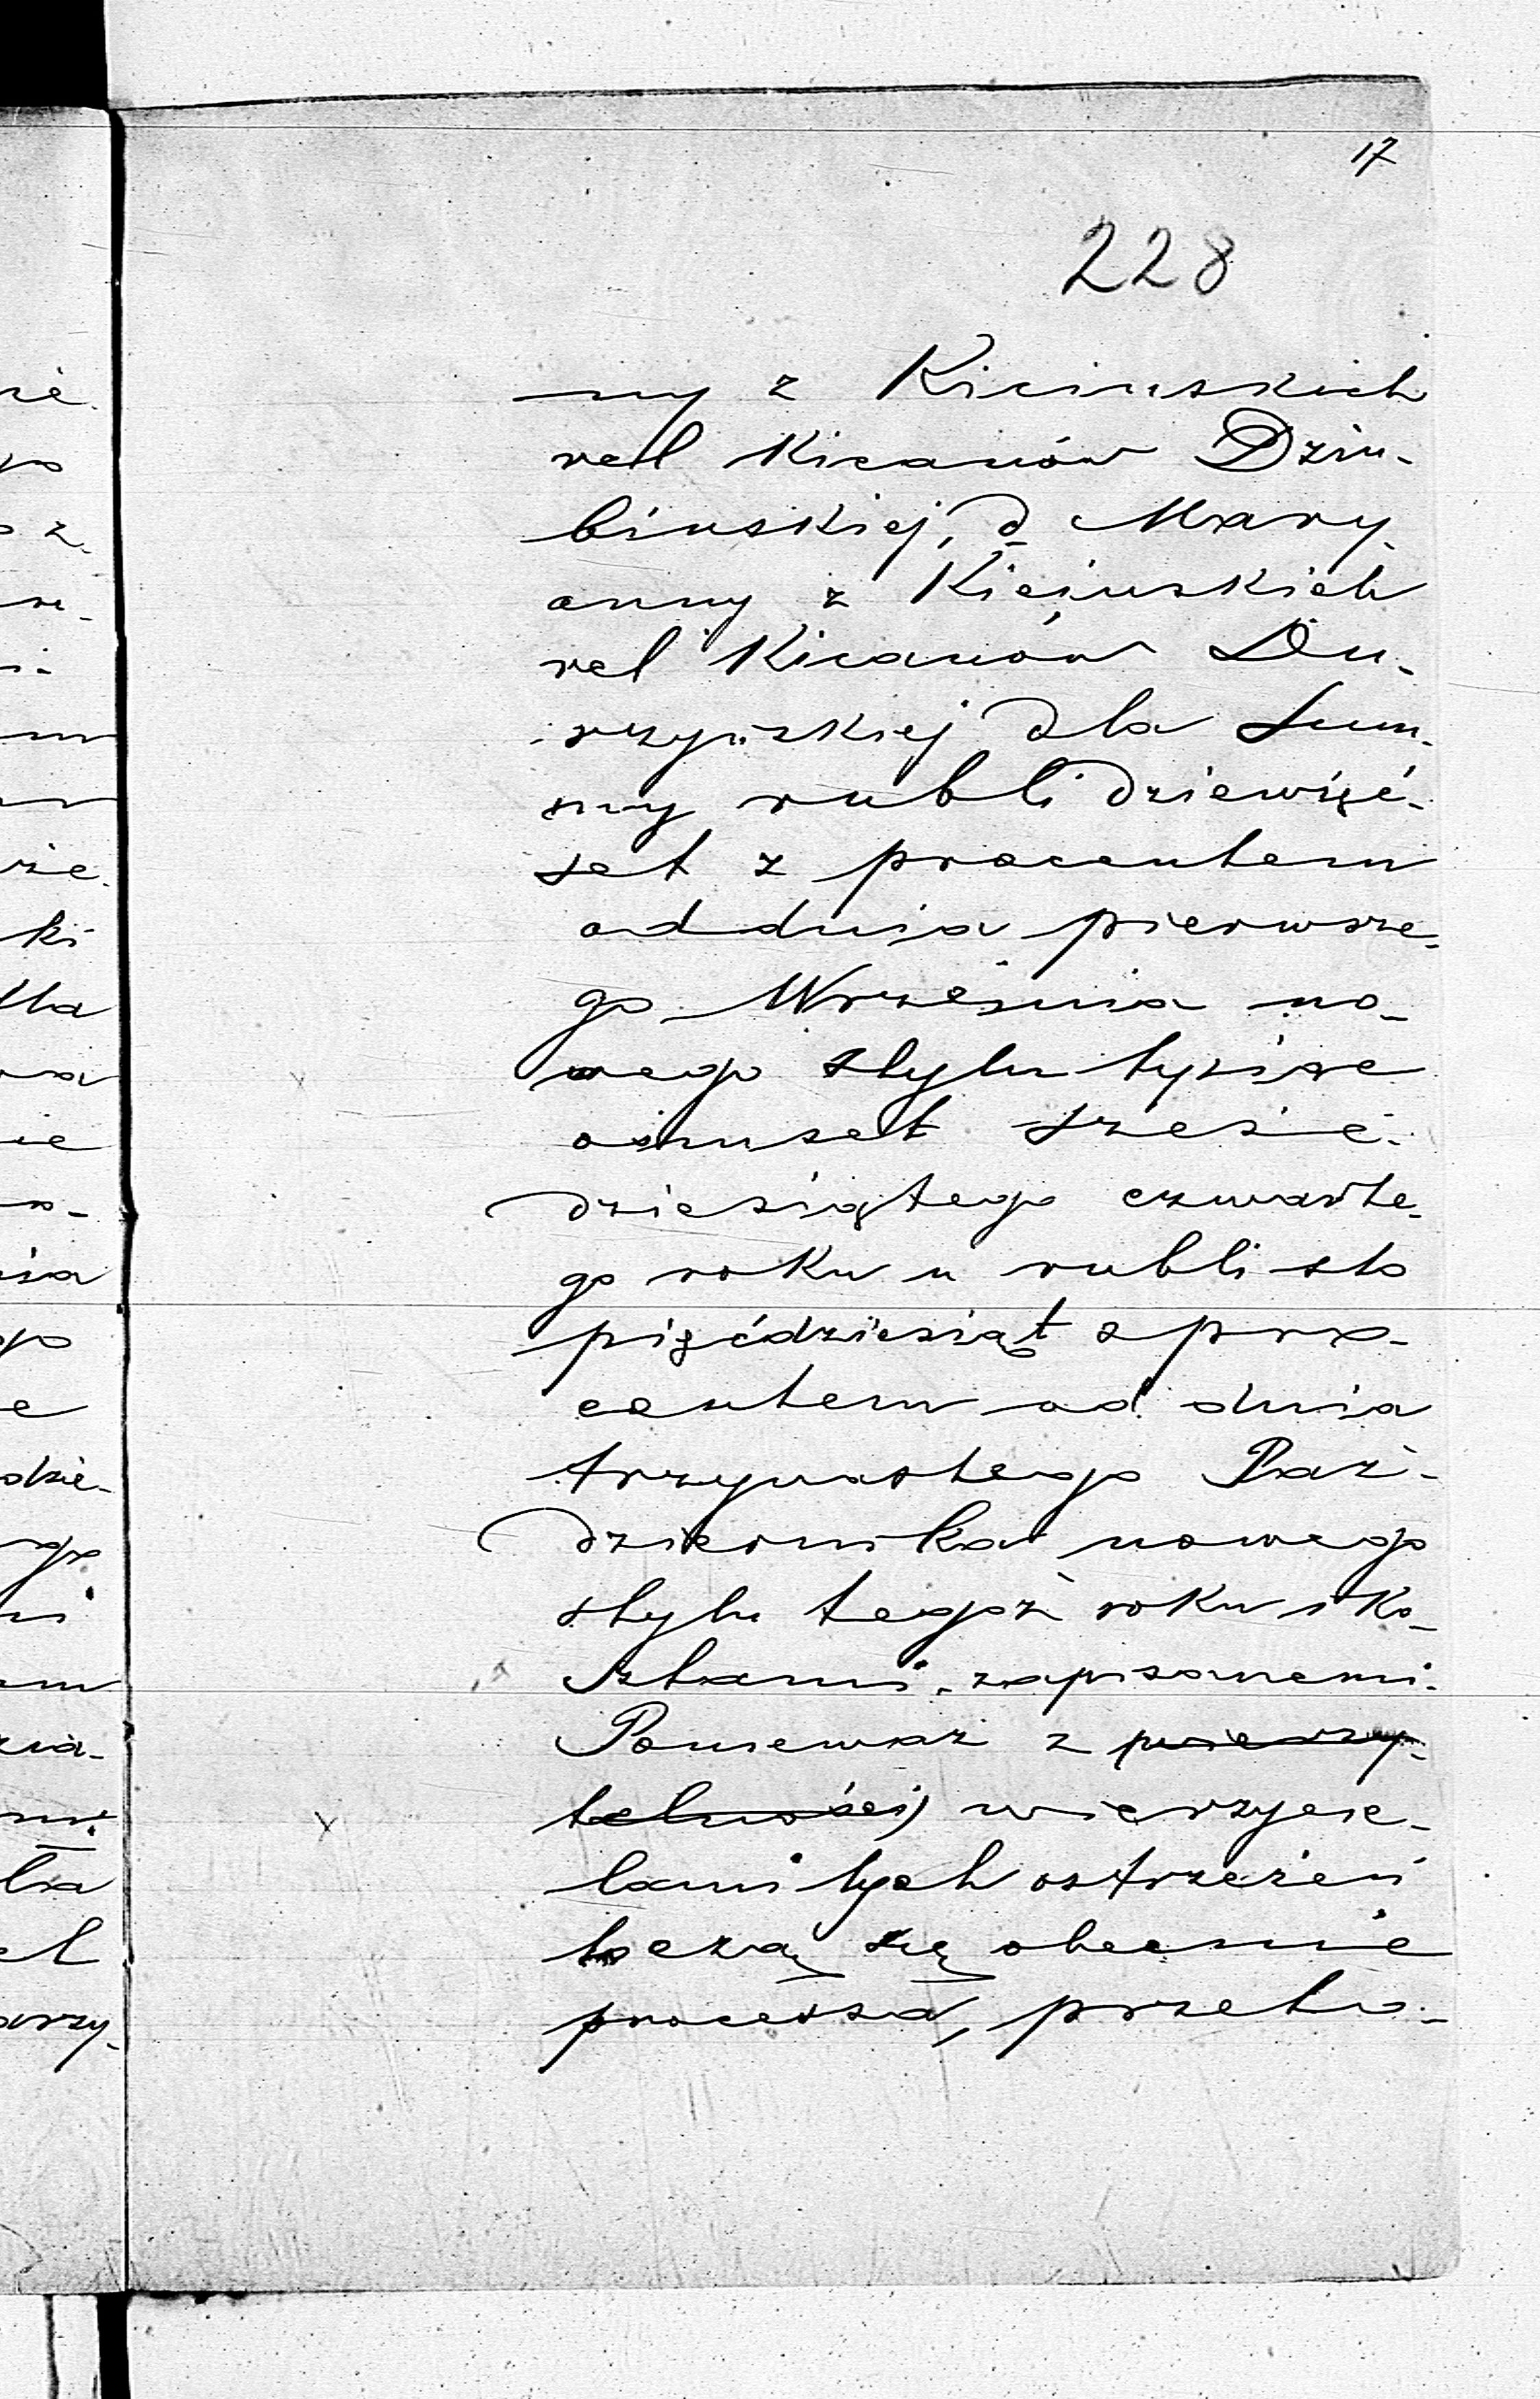 17
228
ny z Kicinskich
vel Kicanów Dziu-
binskiej, d Mary-
anny z Kicinskich
vel Kicanów Du-
rzyńskiej dla Sum-
my rubli dziewięć-
set z procentem
od dnia pierwsze-
go Września no-
wego stylu tysiąc
ośmset sześć-
dziesiątego czwarte-
go roku u rubli sto
pięćdziesiąt z pro-
centem od dnia
trzynastego Paź-
dziernika nowego
stylu tegoż roku i ko-
sztami zapisanemi.
Ponieważ z
telności) wierzycie-
lami tych ostrzeżeń
toczą się obecnie
processa, przeto